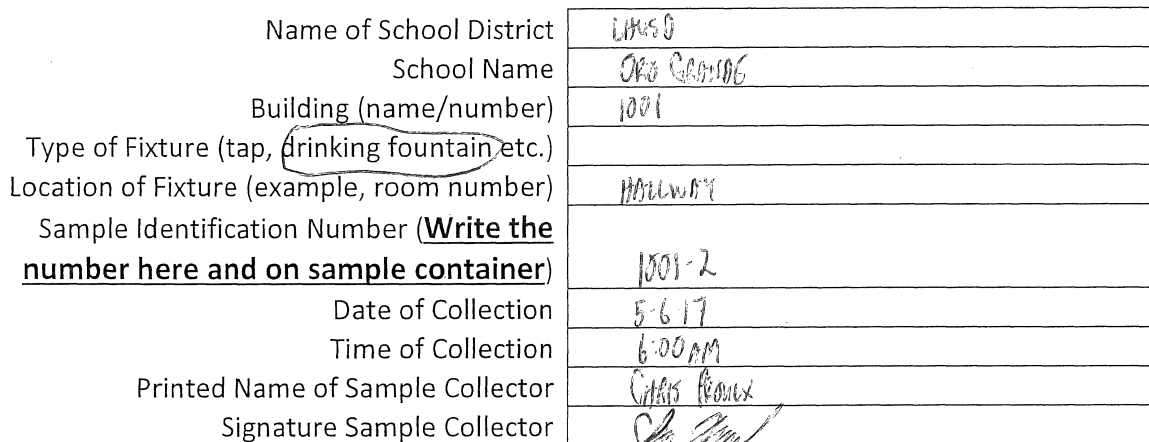 Name of School District LHUSD
School Name ORO GRANDE
Building (name/number) 1001
Type of Fixture (tap, drinking fountain etc.)
Location of Fixture (example, room number) HALLWAY
Sample Identification Number (Write the
number here and on sample container) 1001-2
Date of Collection 5-6-17
Time of Collection 6:00 AM
Printed Name of Sample Collector CHRIS
Signature Sample Collector